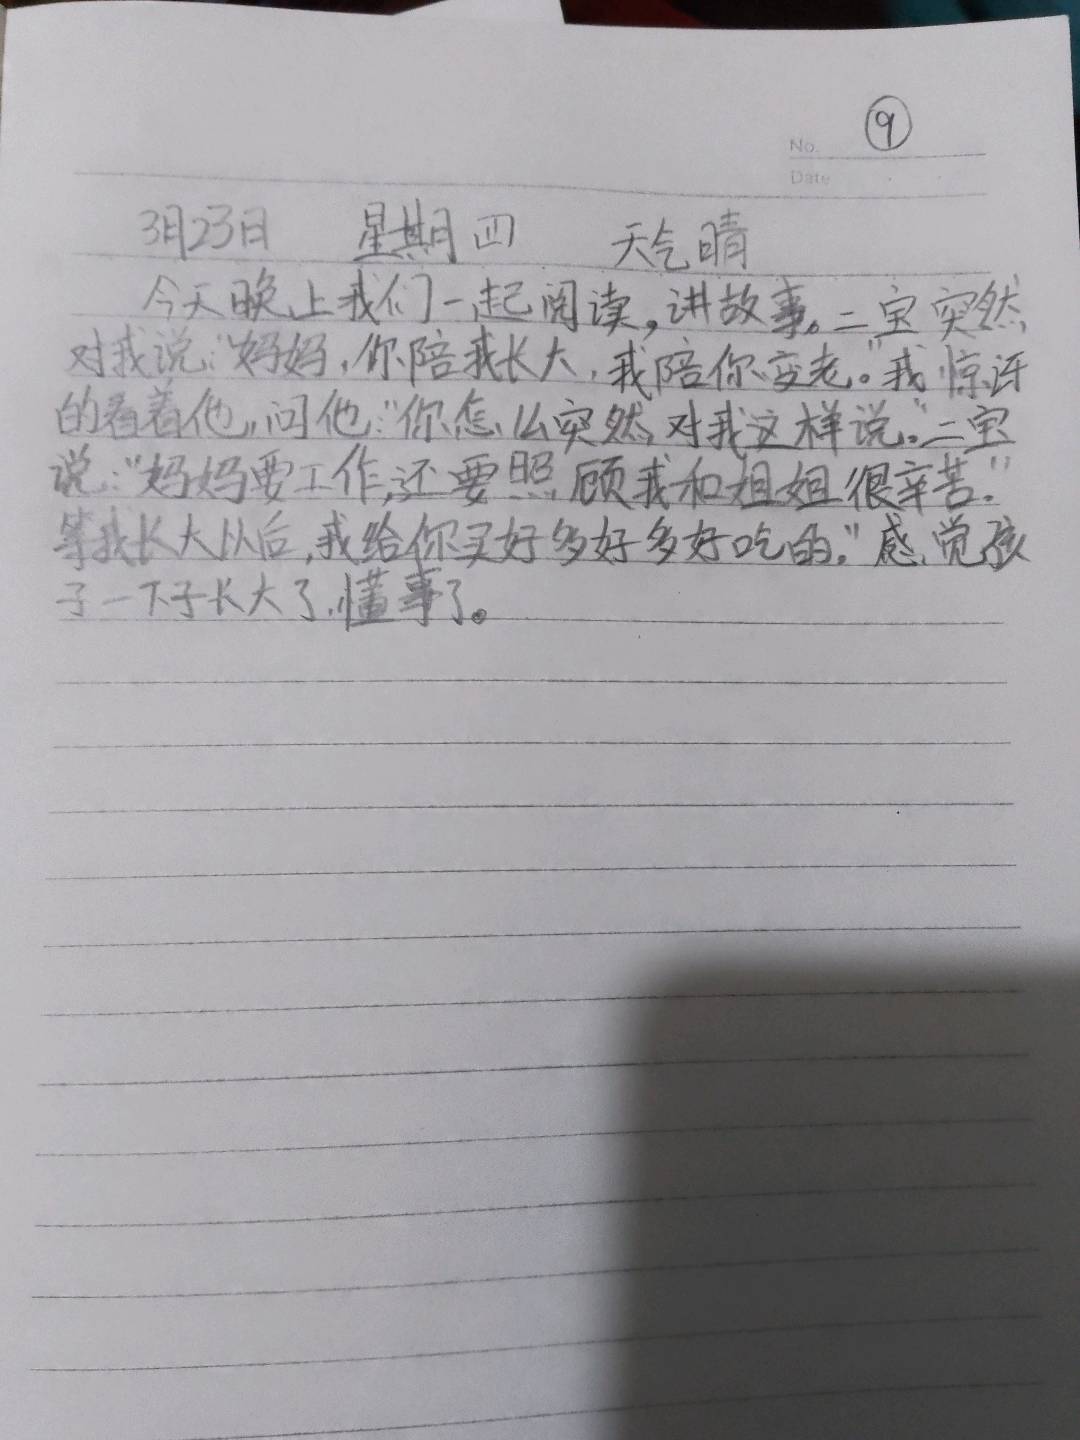 ⑨
No.
Date
3月23日 星期四 天气晴
今天晚上我们一起阅读,讲故事。二宝突然
对我说:“妈妈,你陪我长大,我陪你变老。”我惊讶
的看着他,问他:“你怎么突然对我这样说。”二宝
说:“妈妈要工作,还要照顾我和姐姐很辛苦。”
等我长大从后,我给你买好多好多好吃的。”感觉孩
子一下子长大了,懂事了。